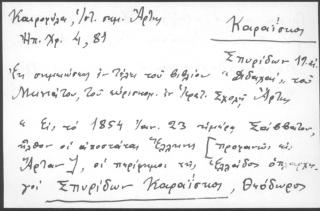 Καιροφύλα, Ἱστ. σημ. Ἄρτης
Ἠπ. Χρ. 4, 81
Καραΐσκος
Σπυρίδων
Ἐκ σημειώσεως ἐν τέλει τοῦ βιβλίου "Διδαχαὶ" τοῦ
Μηνιάτου, τοῦ εὑρισκομ. ἐν Ἱερατ. Σχολῇ Ἄρτης
" Εἰς τὸ 1854 Ἰαν. 23 ἡμέρᾳ Σάββατον,
ἦλθον οἱ ἀποστάται Ἕλληνες [ εἰς
Ἄρταν ], οἱ περίφημοι τῆς Ἑλλάδος ὁπλαρχη-
γοὶ Σπυρίδων Καραΐσκος, Θεόδωρος